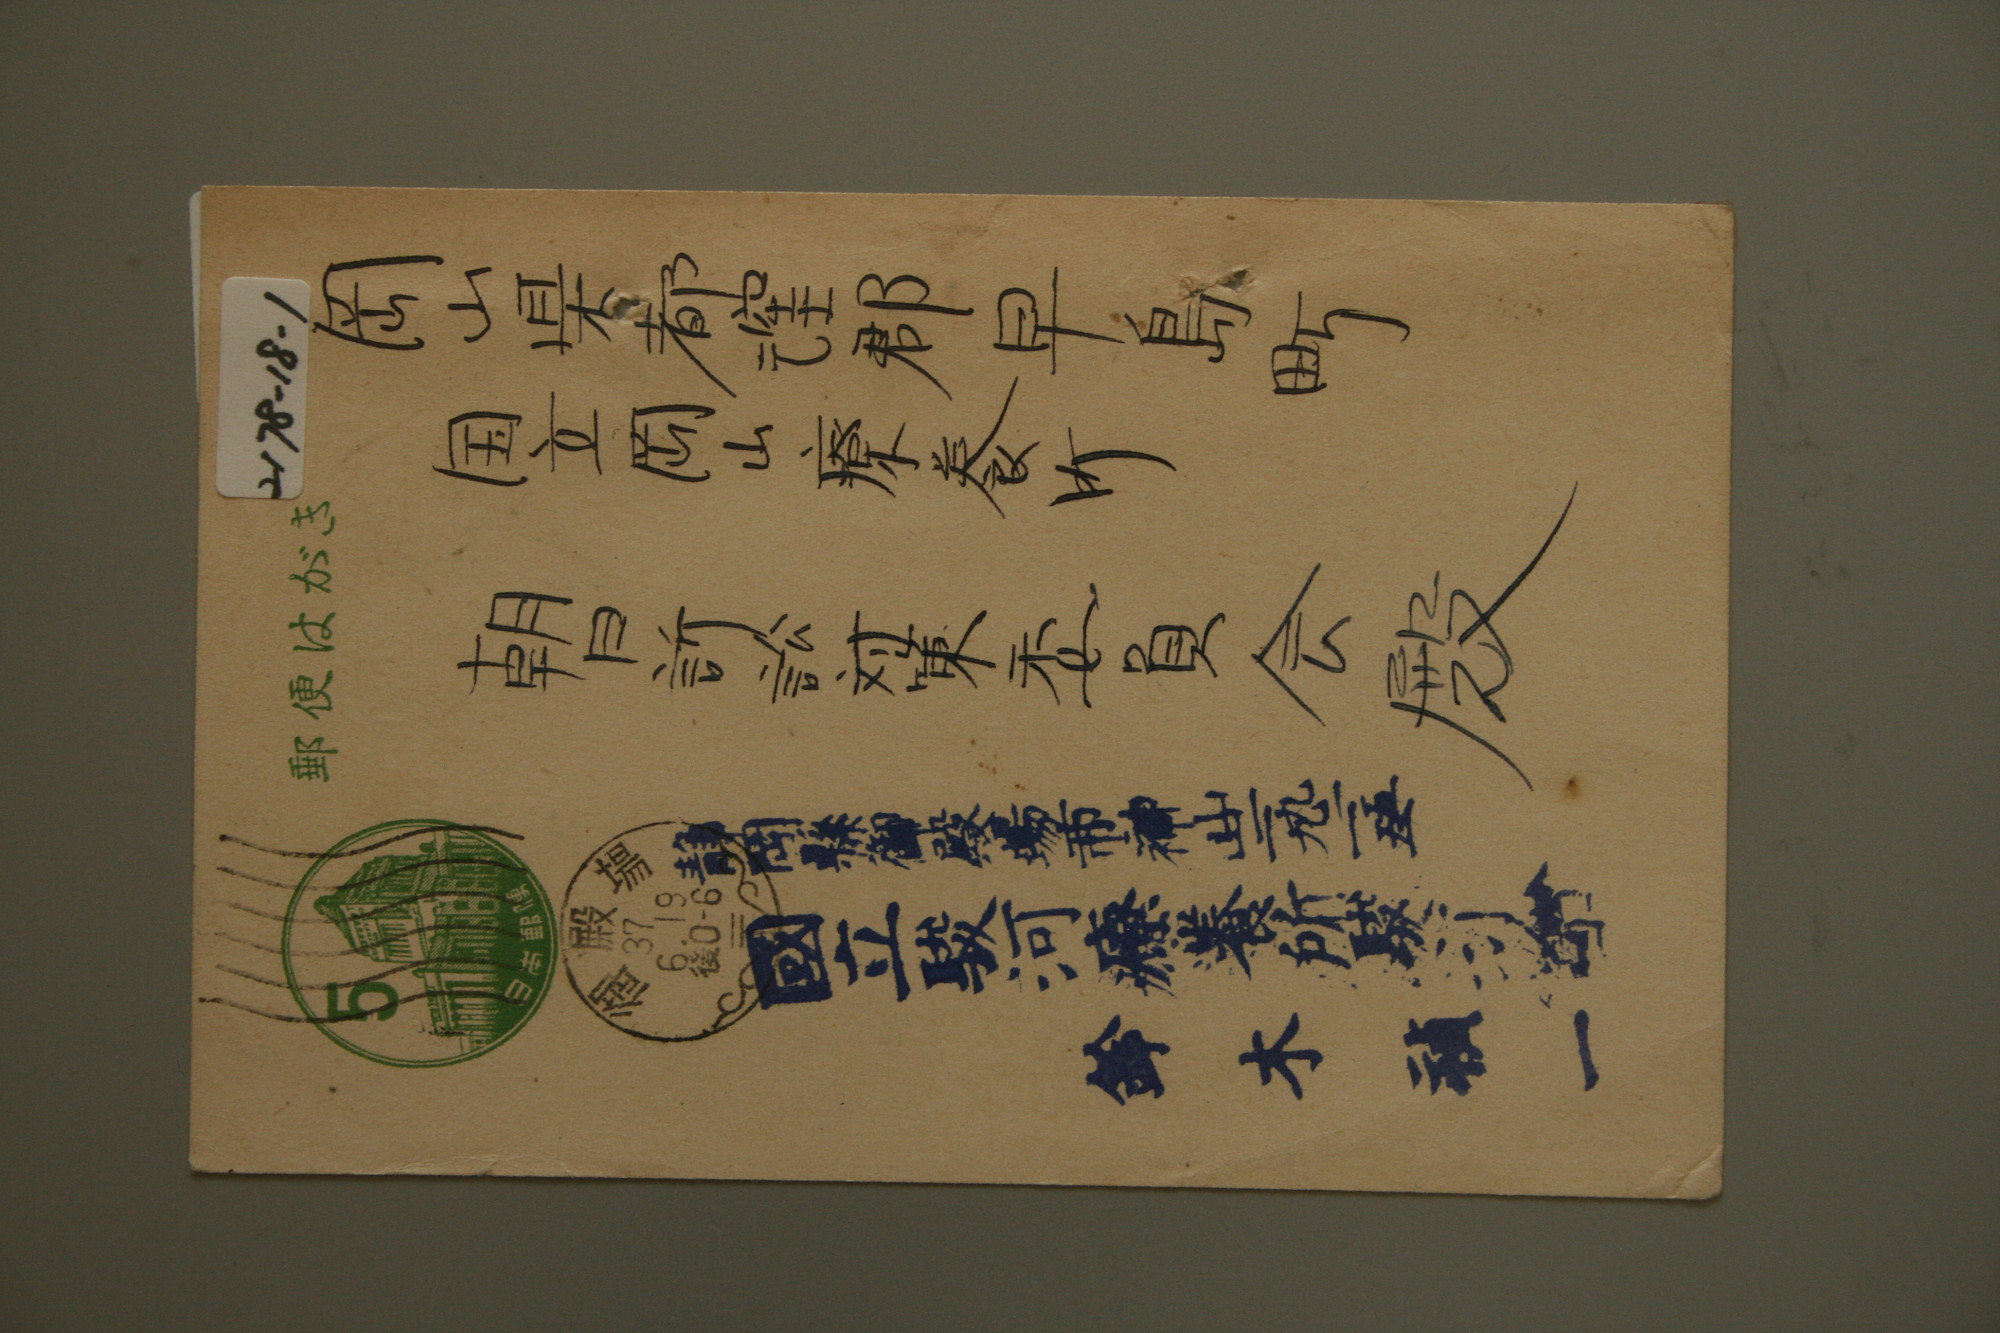 2178-18-1
郵便はがき
岡山県都窪郡早島町
国立岡山療養所
朝日訴訟対策委員会殿
5
日本郵便
御殿場
37
6.19
後0-6
静岡県御殿場市神山一九一五
國立駿河療養所駿河
鈴木禎一